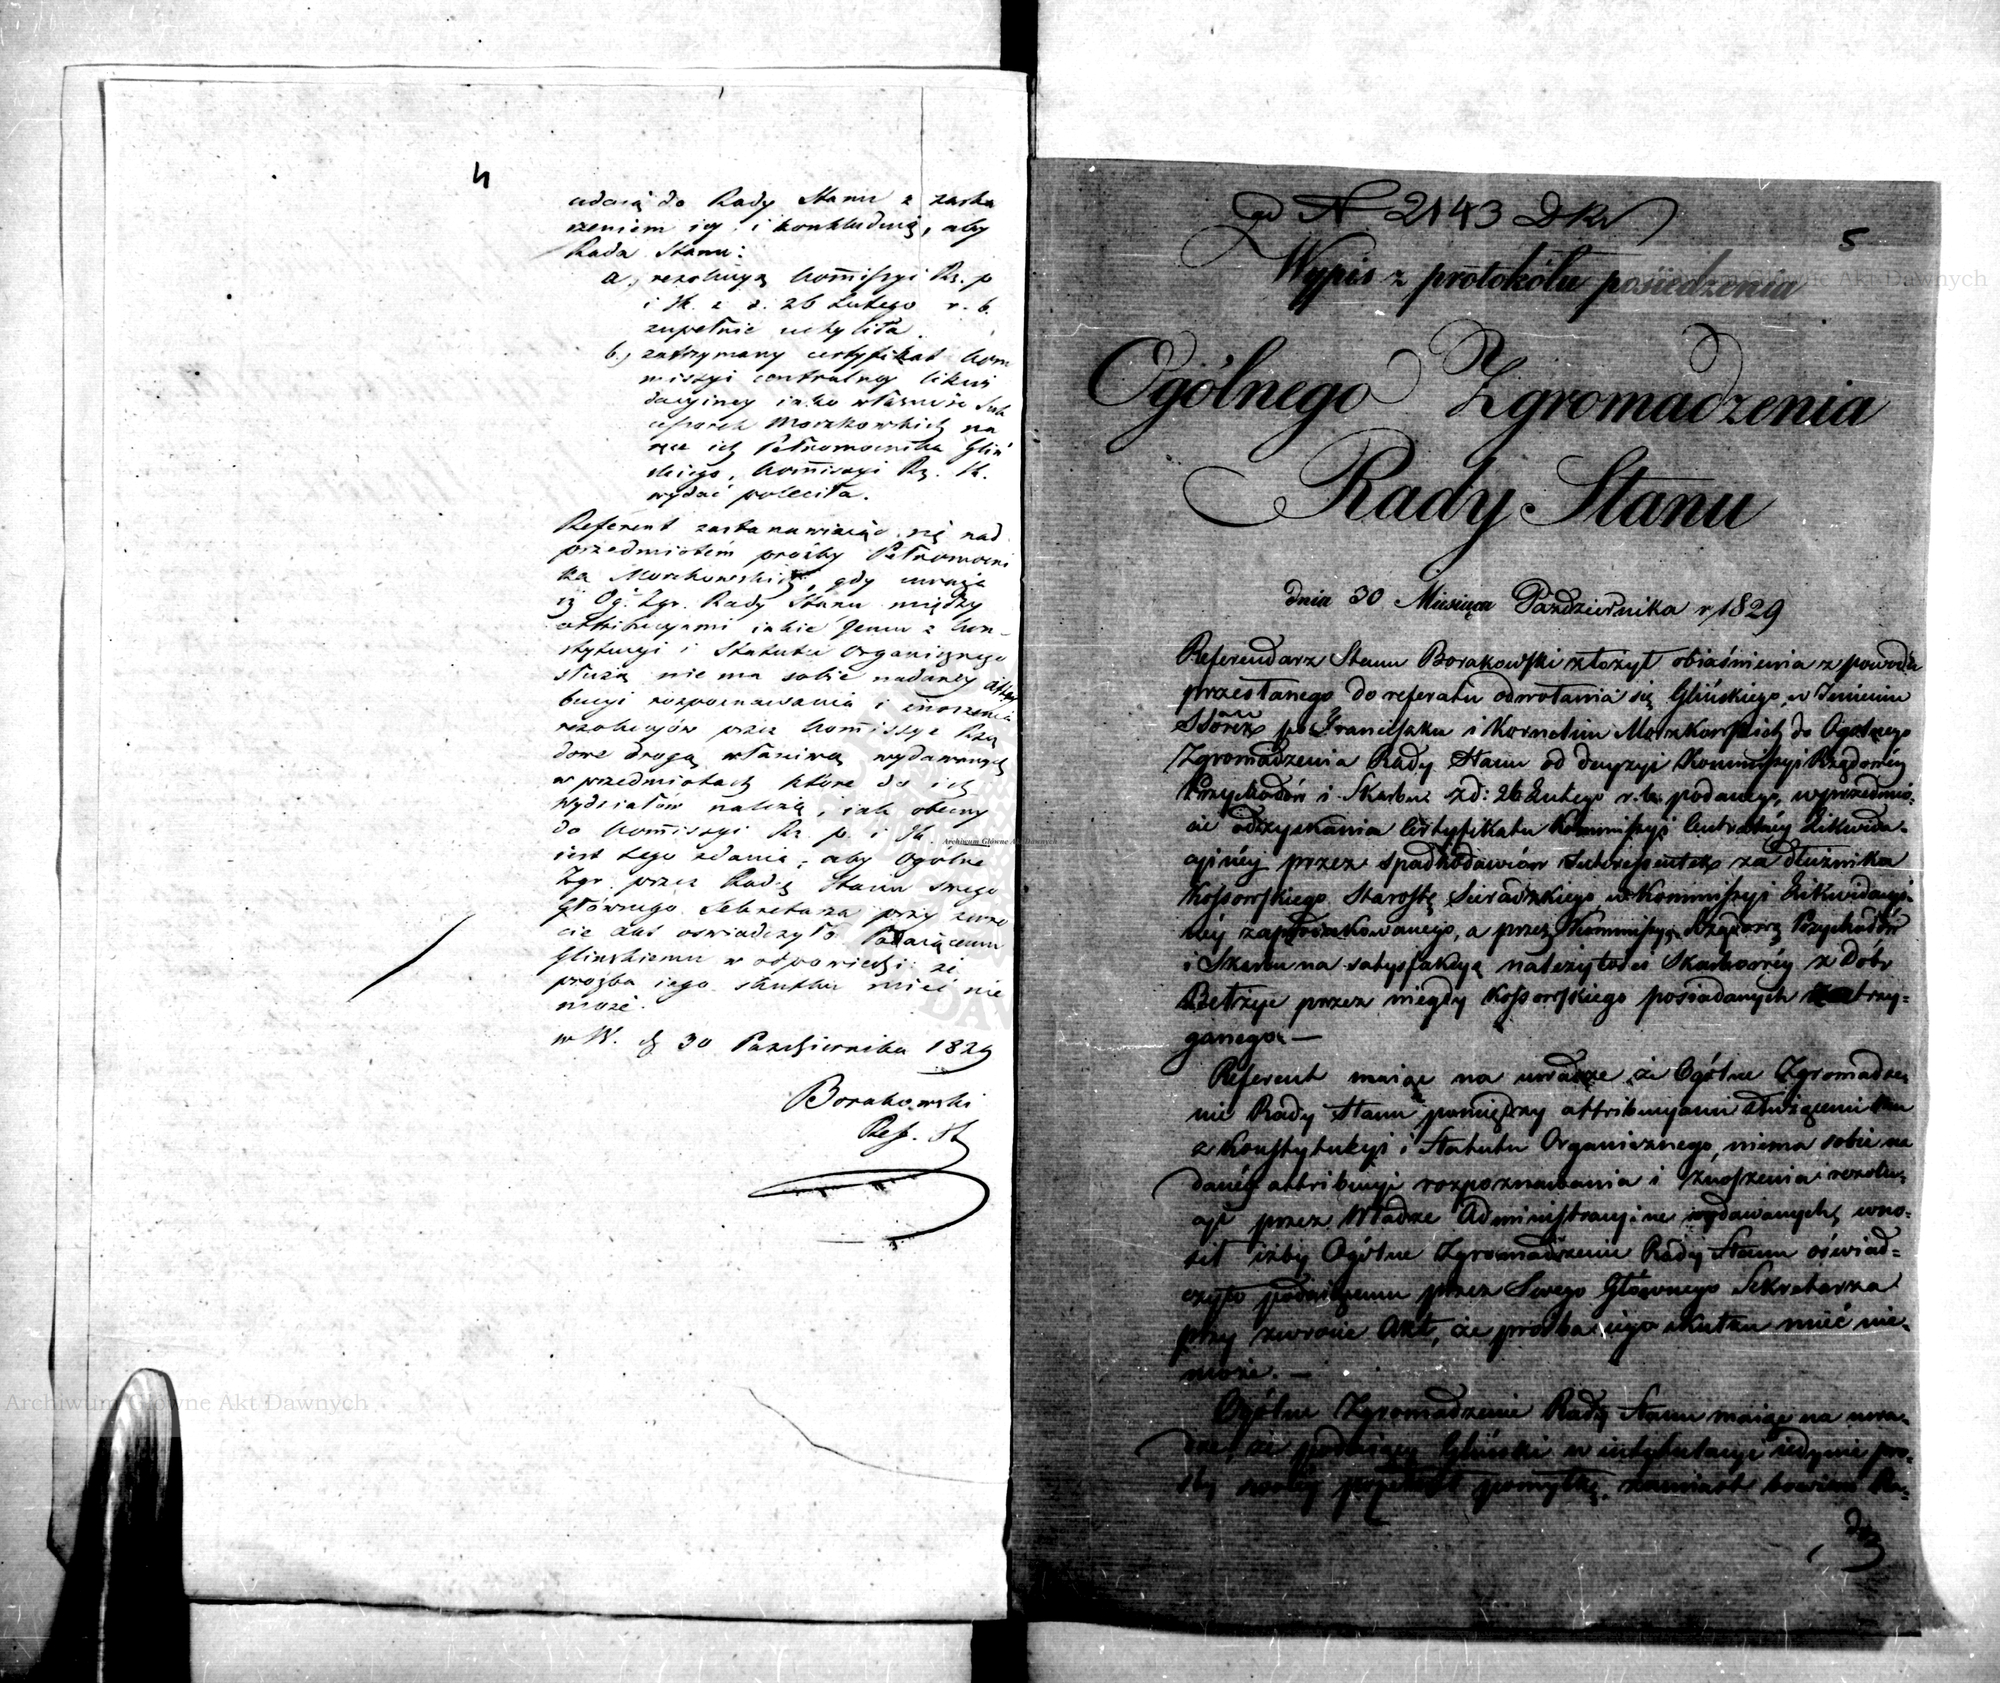 4
udaią do Rady Stanu z zaska
rzeniem iey i konkluduią, aby
Rada Stanu:
a, rezolucyą Kommissyi Rz. p
i Sk. z d. 26 Lutego r. b.
zupełnie uchyliła.
b, zatrzymany certyfikat Kom
missyi centralney likwi
dacyiney iako własność Suk
cessorów Morzkowskich na
ręce ich Pełnomocnika Gliń
skiego, Kommissyi Rz. Sk.
wydać poleciła.
Referent zastanawiaiąc się nad
przedmiotem prośby Pełnomocni
ka Morzkowskich, gdy uważa
iż Og. Zgr. Rady Stanu między
attribucyami iakie Jemu z Kon
stytucyi i Statutu Organicznego
służą nie ma sobie nadaney attry
bucyi rozpoznawania i znoszenia
rezolucyów przez Kommissye Rzą
dowe drogą właściwą wydawanych
w przedmiotach które do ich
wydziałów należą, iak obecny
do Kommissyi Rz. p. i Sk.
iest tego zdania, aby Ogólne
Zgr. przez Radę Stanu swego
Głównego Sekretarza przy zwro
cie akt oświadczyło Podaiącemu
Glinskiemu w odpowiedzi że
prozba iego skutku mieć nie
może.
w W. d. 30 Pazdziernika 1829
Borakowski
Ref. St
5
ad N 2143 Dkn
Wypis z protokółu posiedzenia
Ogólnego Zgromadzenia
Rady Stanu
dnia 30 Miesiąca Pazdziernika r. 1829
Referendarz Stanu Borakowski złożył obiaśnienia z powodu
przesłanego do referatu odwołania się Glińskiego, w Imieniu
SSorów po Franciszku i Kornelim Morzkowskich do Ogólnego
Zgromadzenia Rady Stanu od decyzyi Kommissyi Rządowéy
Przychodów i Skarbu z d: 26 Lutego r. b. podanego, w przedmio-
cie odzyskania Certyfikatu Kommissyi Centralnéy Likwida-
cyinéy przez spadkodawców Sukcessorów za dłużnika
Kossowskiego Starostę Sieradzkiego w Kommissyi Likwidacyi-
néy zaprodukowanego, a przez Kommissyą Rządową Przychodów
i Skarbu na satysfakcyą należytości Skarbowéy z Dóbr
przez niegdy Kossowskiego posiadanych zatrzy-
ganego. —
Referent maiąc na uwadze że Ogólne Zgromadze-
nie Rady Stanu pomiędzy attribucyami służącemi mu
z Konstytucyi i Statutu Organicznego, niema sobie na
danéy attribucyi rozpoznawania i znoszenia rezolu-
cyi przez Władze Administracyine wydawanych, wno-
sił iżby Ogólne Zgromadzenie Rady Stanu oświad-
czyło podaiącemu przez Swego Głównego Sekretarza
przy zwrocie Akt, że prośba iego skutku mieć nie-
może. —
Ogólne Zgromadzenie Rady Stanu maiąc na uwa-
dze, że podaiący Gliński w intytulacyi iedynie pro-
śby swoiéy popełnił pomyłkę, zamiast bowiem Ra-
dzie
Archiwum Główne Akt Dawnych
Archiwum Główne Akt Dawnych
Archiwum Główne Akt Dawnych